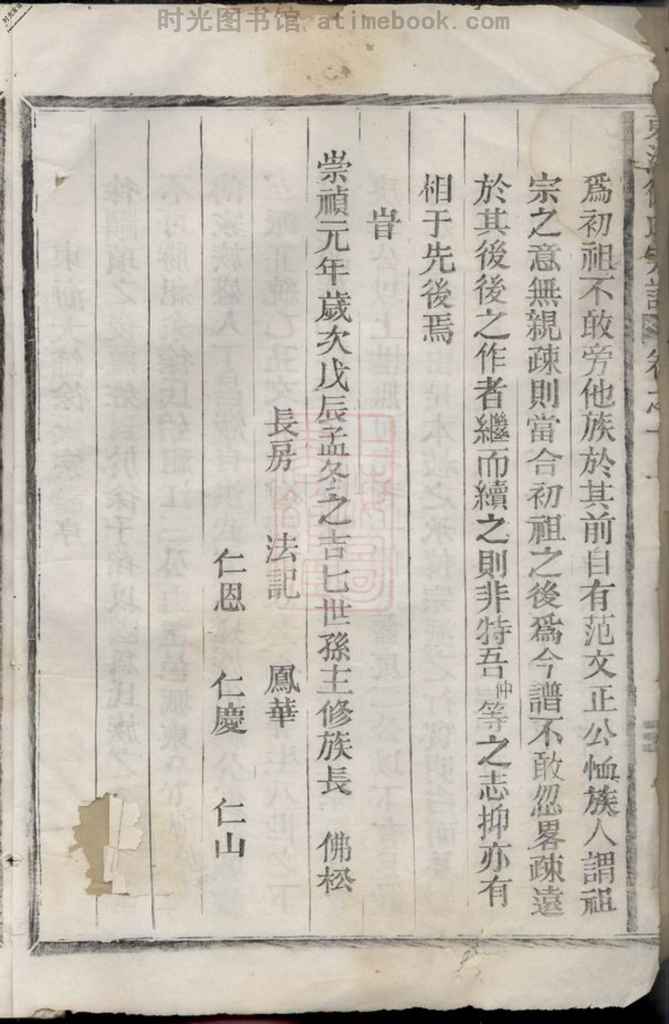 时光图书馆 - atimebook.com
爲初祖不敢旁他族於其前自有范文正公恤族人謂祖
宗之意無親疎則當合初祖之後爲今譜不敢忽畧疎遠
於其後後之作者繼而續之則非特吾仲等之志抑亦有
相于先後焉
旹
崇禎元年歲次戊辰孟冬之吉七世孫主修族長 佛松
長房 法記 鳳華
仁恩 仁慶 仁山